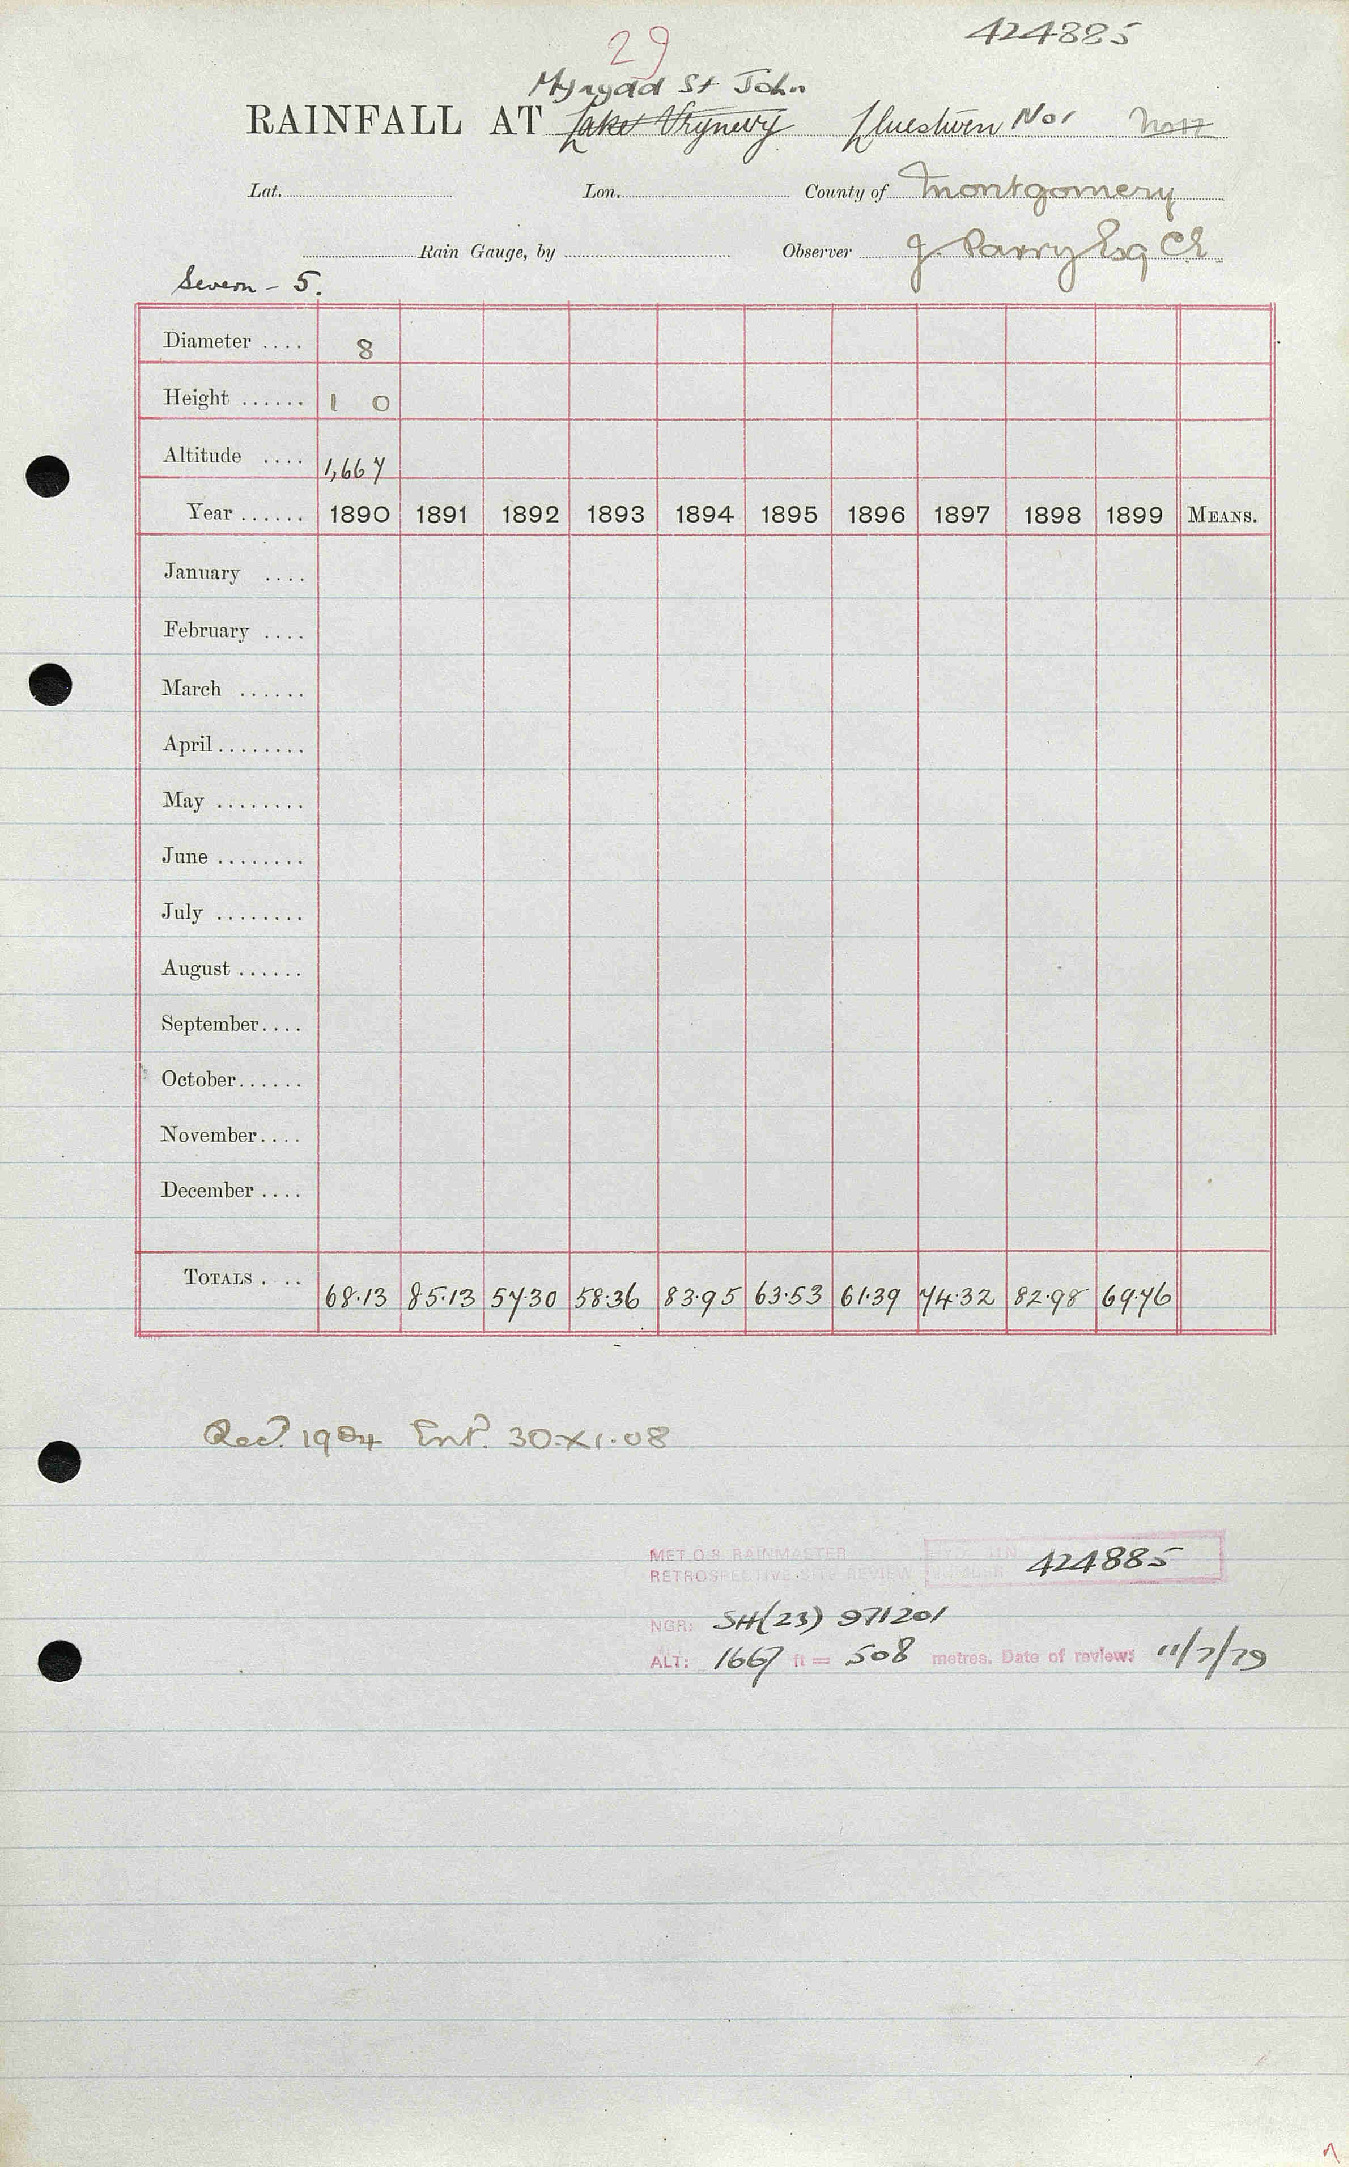 29
424885
Mynydd St John
RAINFALL AT Lake Vyrnwy Lluestwen No 1
Lat. Lon. County of Montgomery
Rain Gauge, by Observer J. Parry Esq CE
Severn - 5.
Diameter .... 8
Height ...... 1 0
Altitude .... 1,667
Year ...... 1890 1891 1892 1893 1894 1895 1896 1897 1898 1899 MEANS.
January ....
February ....
March ......
April ........
May ........
June ........
July ........
August ......
September ....
October ......
November ....
December ....
TOTALS . .. 68.13 85.13 57.30 58.36 83.95 63.53 61.39 74.32 82.98 69.76
Recd. 1904 Entd. 30.XI.08
MET.O.8 RAINMASTER
RETROSPECTIVE SITE REVIEW NUMBER 424885
NGR: SH(23) 971201
ALT: 1667 ft = 508 metres. Date of review: 11/7/79